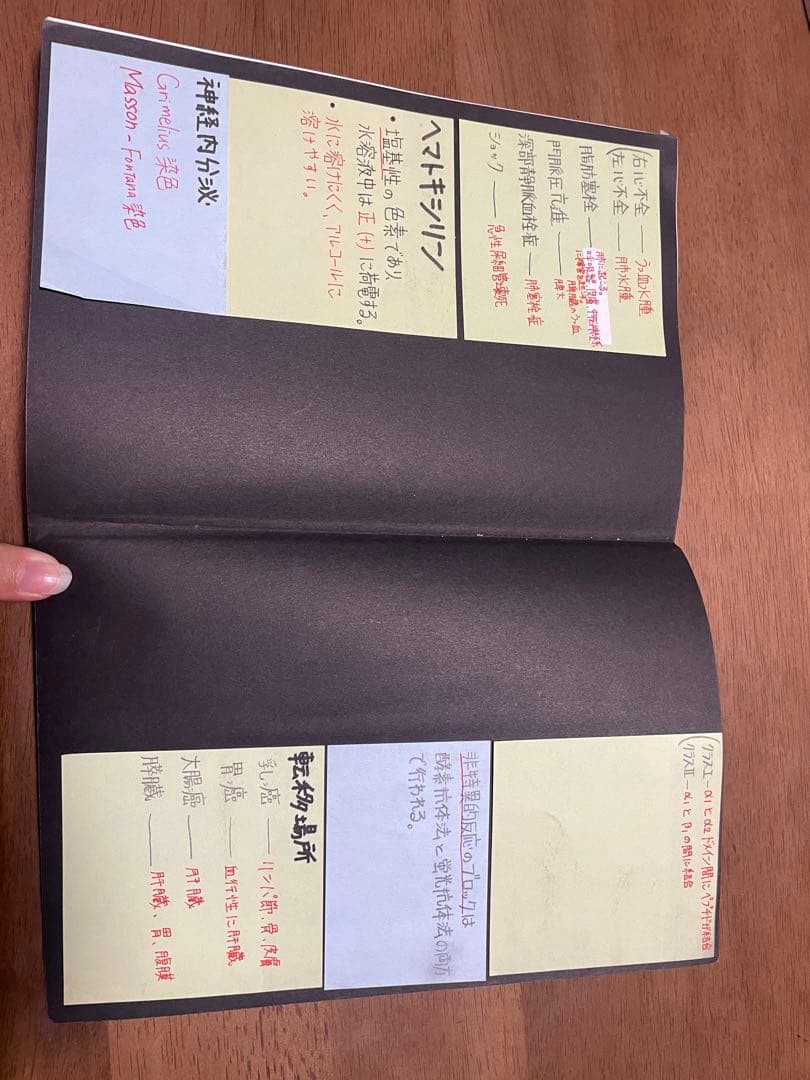 右心不全 ― うっ血水腫
左心不全 ― 肺水腫
脂肪塞栓 ―
門脈圧亢進 ― 脾腫大
深部静脈血栓症 ― 肺塞栓症
ショック ― 急性尿細管壊死
ヘマトキシリン
・塩基性の色素であり
水溶液中は正(+)に荷電する。
・水に溶けにくく、アルコールに
溶けやすい。
神経内分泌
Grimelius染色
Masson-Fontana染色
クラスⅠ−α1とα2ドメイン間にペプチドが結合
クラスⅡ−α1とβ1の間に結合
非特異的反応のブロックは
酵素抗体法と蛍光抗体法の両方
で行われる。
転移場所
乳癌 ― リンパ節、骨、皮膚
胃癌 ― 血行性に肝臓
大腸癌 ― 肝臓
膵臓 ― 肝臓、胃、腹膜